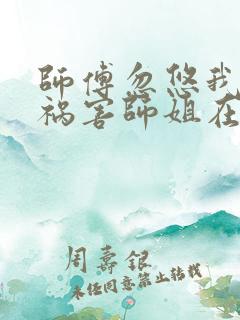 師傅忽悠我
祸害師姐在
周壽銀
未经同意禁止转载